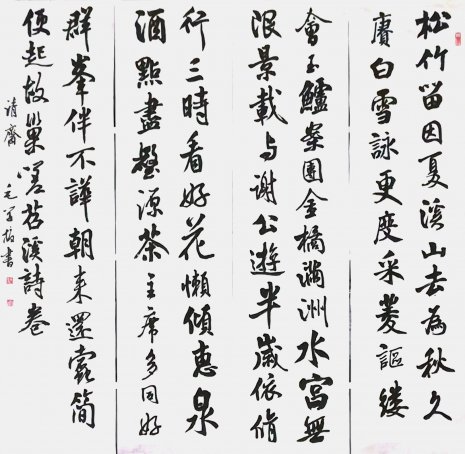 松竹留因夏溪山去為秋久
賡白雪詠更度采菱謳縷
會玉鱸案團金橘滿洲水宮無
限景載与謝公遊半歲依脩
竹三時看好花懶傾惠泉
酒點盡壑源茶主席多同好
群峯伴不譁朝来還蠹簡
便起故巢嗟苕溪詩卷